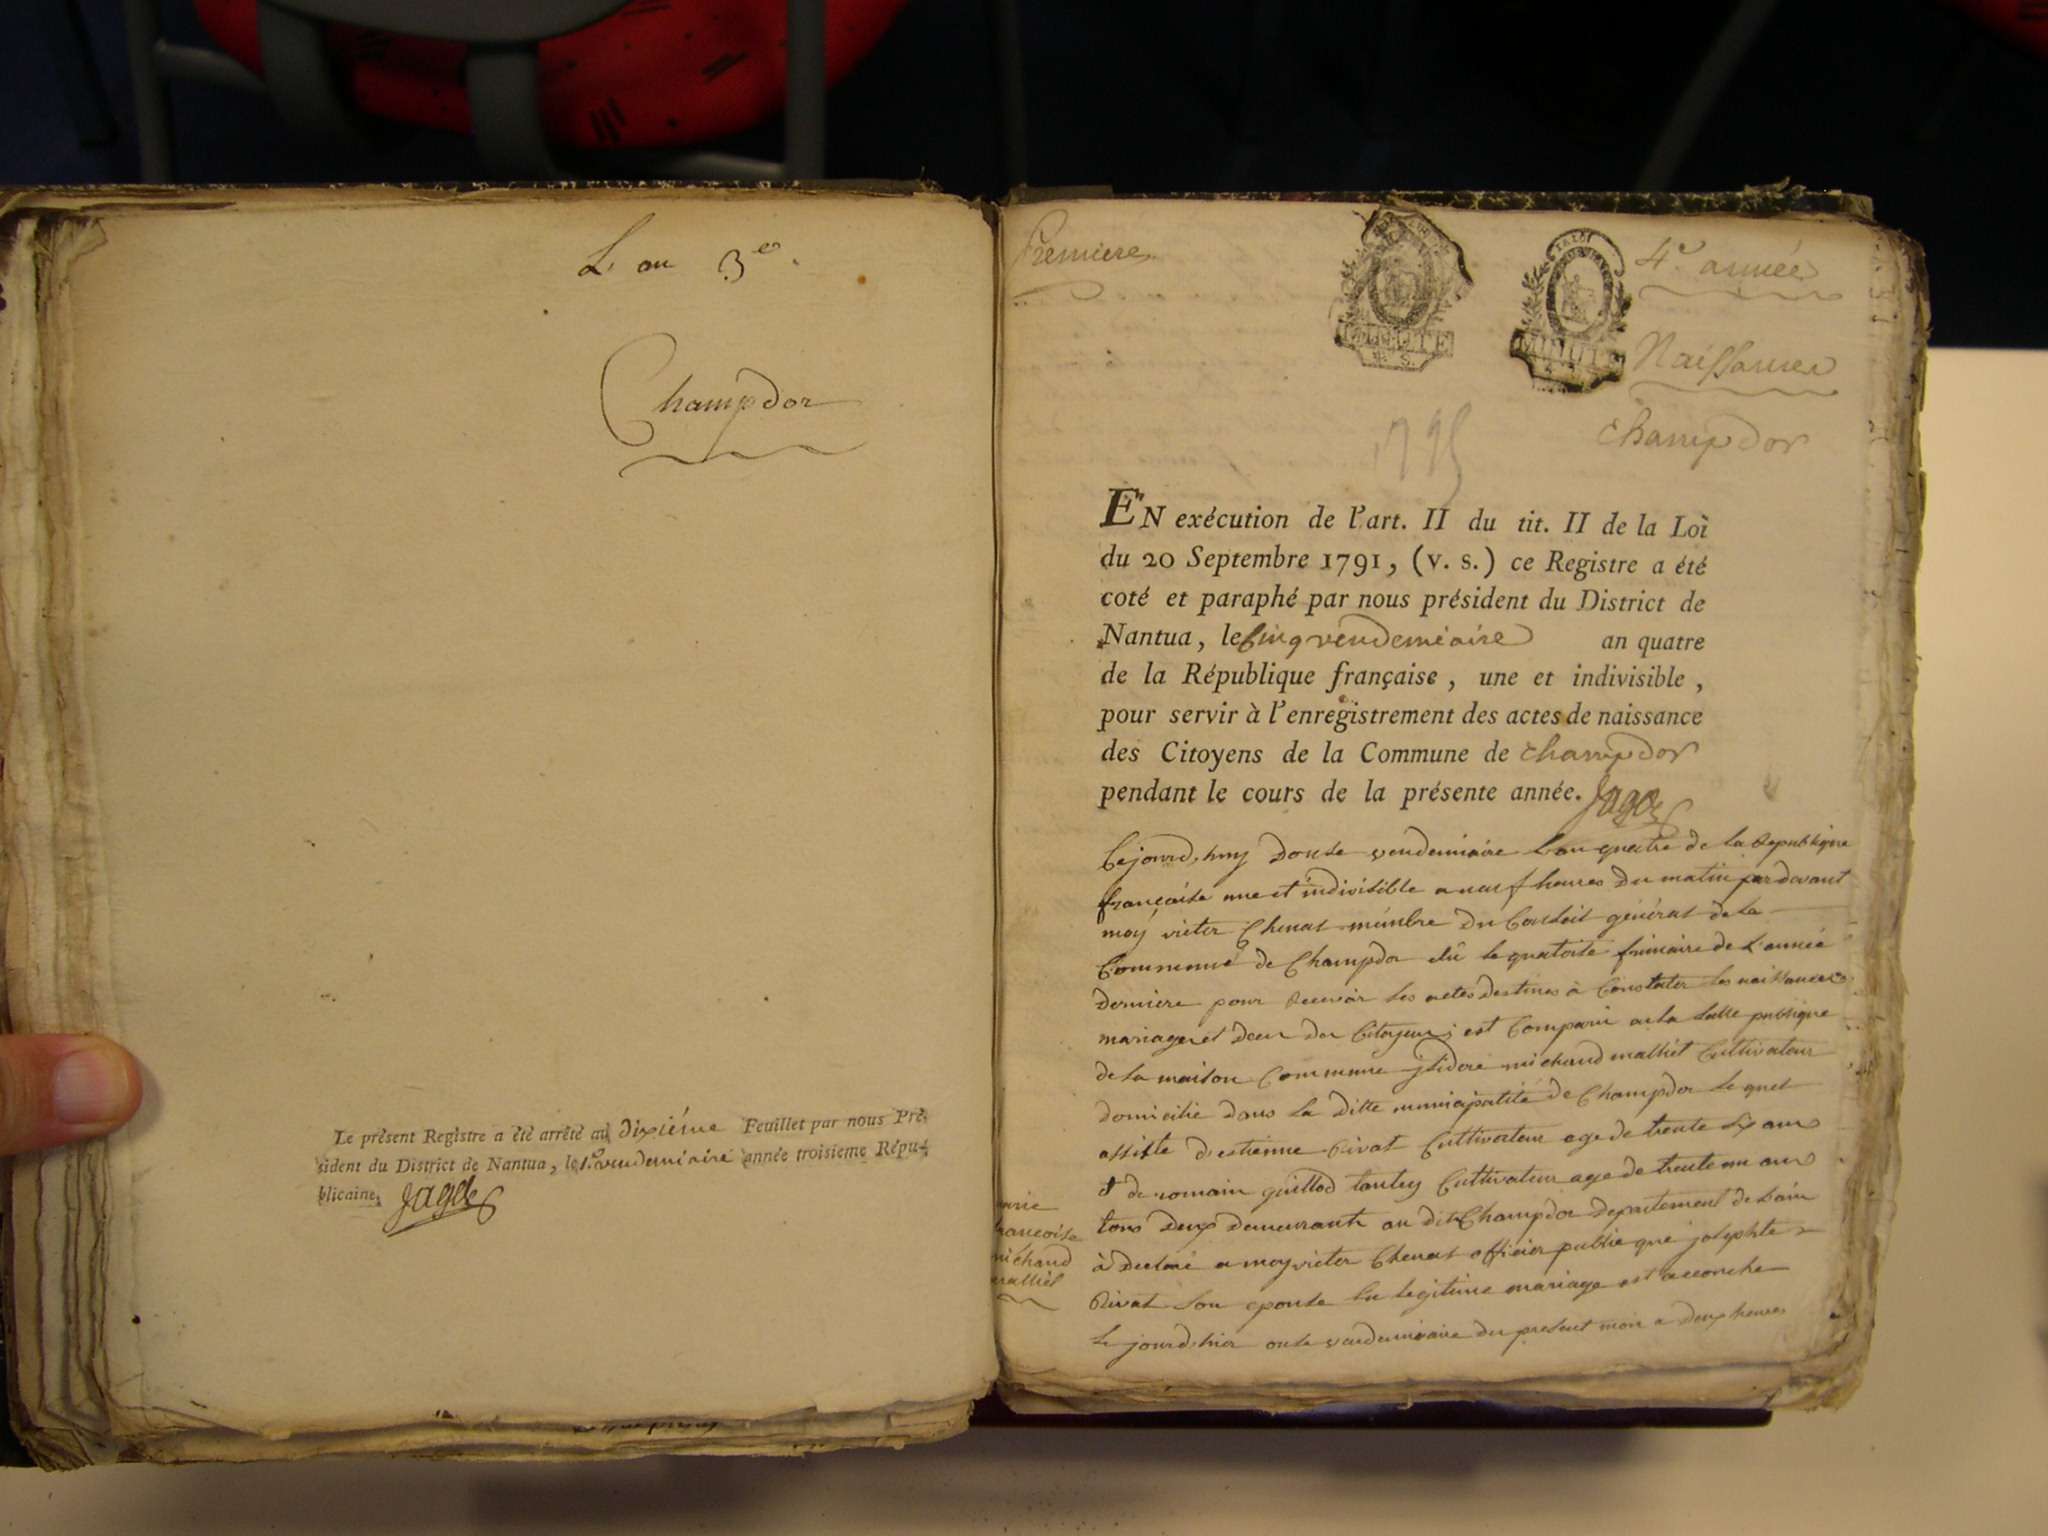 L'an 3e.
Champdor
Le présent Registre a été arrêté au dixiéme Feuillet par nous Pré-
sident du District de Nantua, le 1.er vendemiaire année troisieme Répu-
blicaine. Jagot
Premiere
4e année
Naissances
Champdor
1795
EN exécution de l'art. II du tit. II de la Loi
du 20 Septembre 1791, (v. s.) ce Registre a été
coté et paraphé par nous président du District de
Nantua, le Cinq vendemiaire an quatre
de la République française, une et indivisible,
pour servir à l'enregistrement des actes de naissance
des Citoyens de la Commune de Champdor
pendant le cours de la présente année. Jagot
Cejourd'huy douse vendemiaire L'an quatre de la Republique
française une et indivisible a neuf heures du matin par devant
moy victor Chenat membre du Conseil général de la
Commune de Champdor elû le quatorse frimaire de L'année
derniere pour Recevoir les actes destines à Constater les naissances
mariages et deces des Citoyens; est Comparu en la salle publique
de la maison Commune jsidore michaud malliet Cultivateur
domicilié dans la ditte municipalité de Champdor le quel
assisté d'estienne Rivat Cultivateur age de trente six ans
& de romain guillod tantey Cultivateur age de trente un ans
tous deux demeurants au dit Champdor departement de Lain
à declaré a moy victor Chenat officier public que josephte
Rivat son epouse en legitime mariage est accouche
le jourd'hier onse vendemiaire du present mois a deux heures
marie
francoise
michaud
malliet